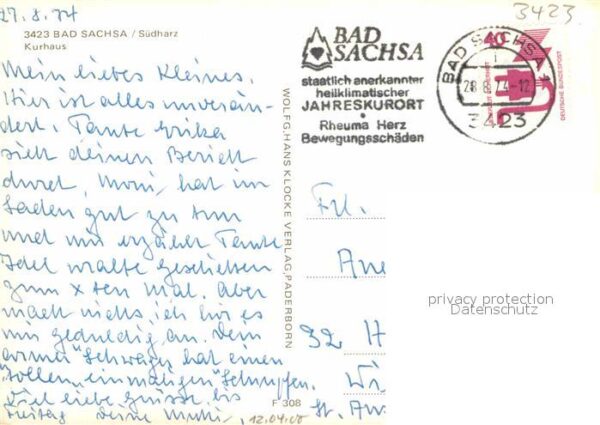 27.8.74
3423
3423 BAD SACHSA / Südharz
Kurhaus
Mein liebes Kleines.
Hier ist alles unverän-
dert. Tante Erika
sieht deinen Bericht
durch, Moni hat im
Laden gut zu tun
und mir erzählt Tante
Idel uralte Geschichten
zum x ten mal. Aber
macht nichts, ich hör es
mir geduldig an. Dein
armer "Schwager" hat einen
"tollen, einmaligen" Schnupfen.
Viel liebe Grüsse bis
Freitag deine Mutti
12.04.00
WOLFG.HANS KLOCKE VERLAG, PADERBORN
F 308
BAD
SACHSA
staatlich anerkannter
heilklimatischer
JAHRESKURORT
Rheuma Herz
Bewegungsschäden
BAD SACHSA 1
28.8.74-12
3423
40
DEUTSCHE BUNDESPOST
Frl.
32 H
Wi
St. An
privacy protection
Datenschutz